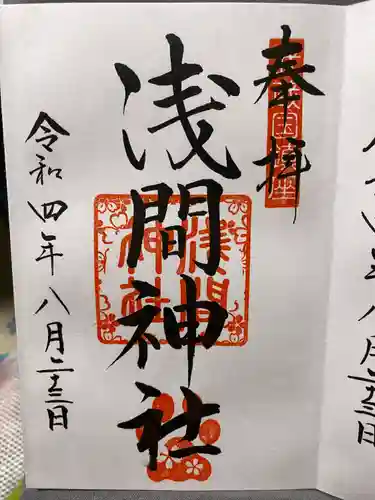 奉拝
浅間神社
浅間
神社
令和四年八月二十三日